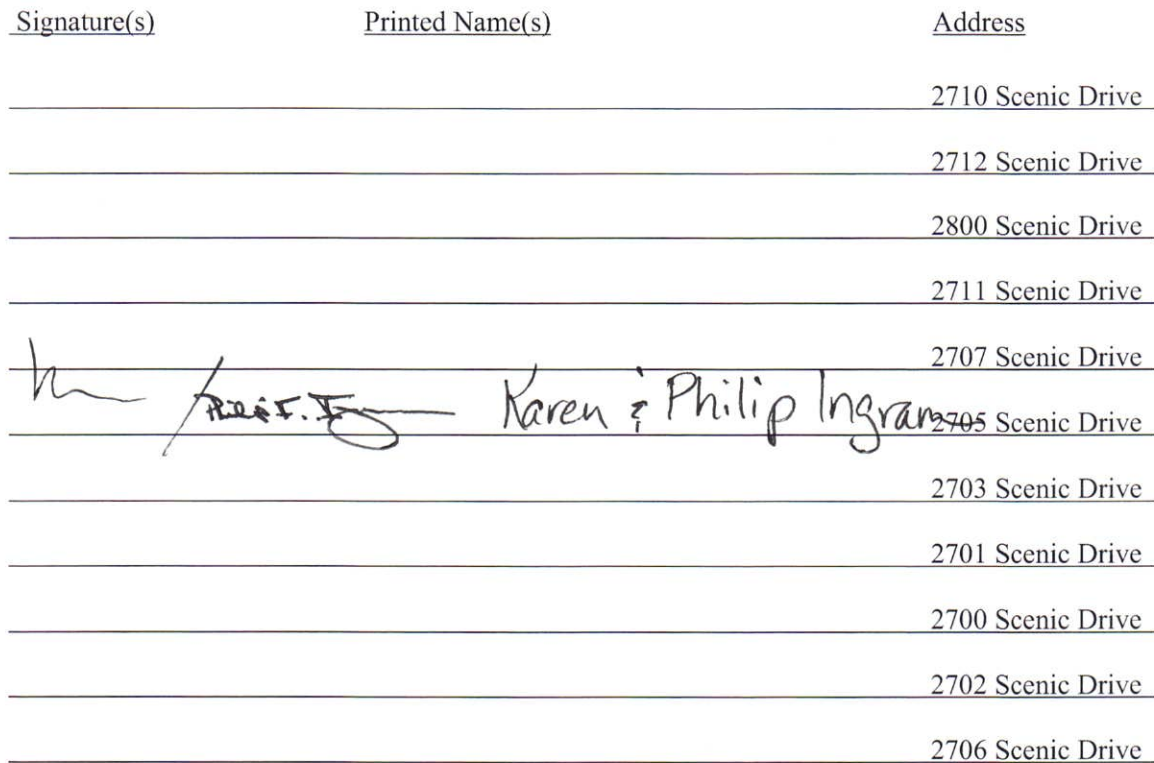 Signature(s) Printed Name(s) Address
2710 Scenic Drive
2712 Scenic Drive
2800 Scenic Drive
2711 Scenic Drive
2707 Scenic Drive
Karen & Philip Ingram 2705 Scenic Drive
2703 Scenic Drive
2701 Scenic Drive
2700 Scenic Drive
2702 Scenic Drive
2706 Scenic Drive